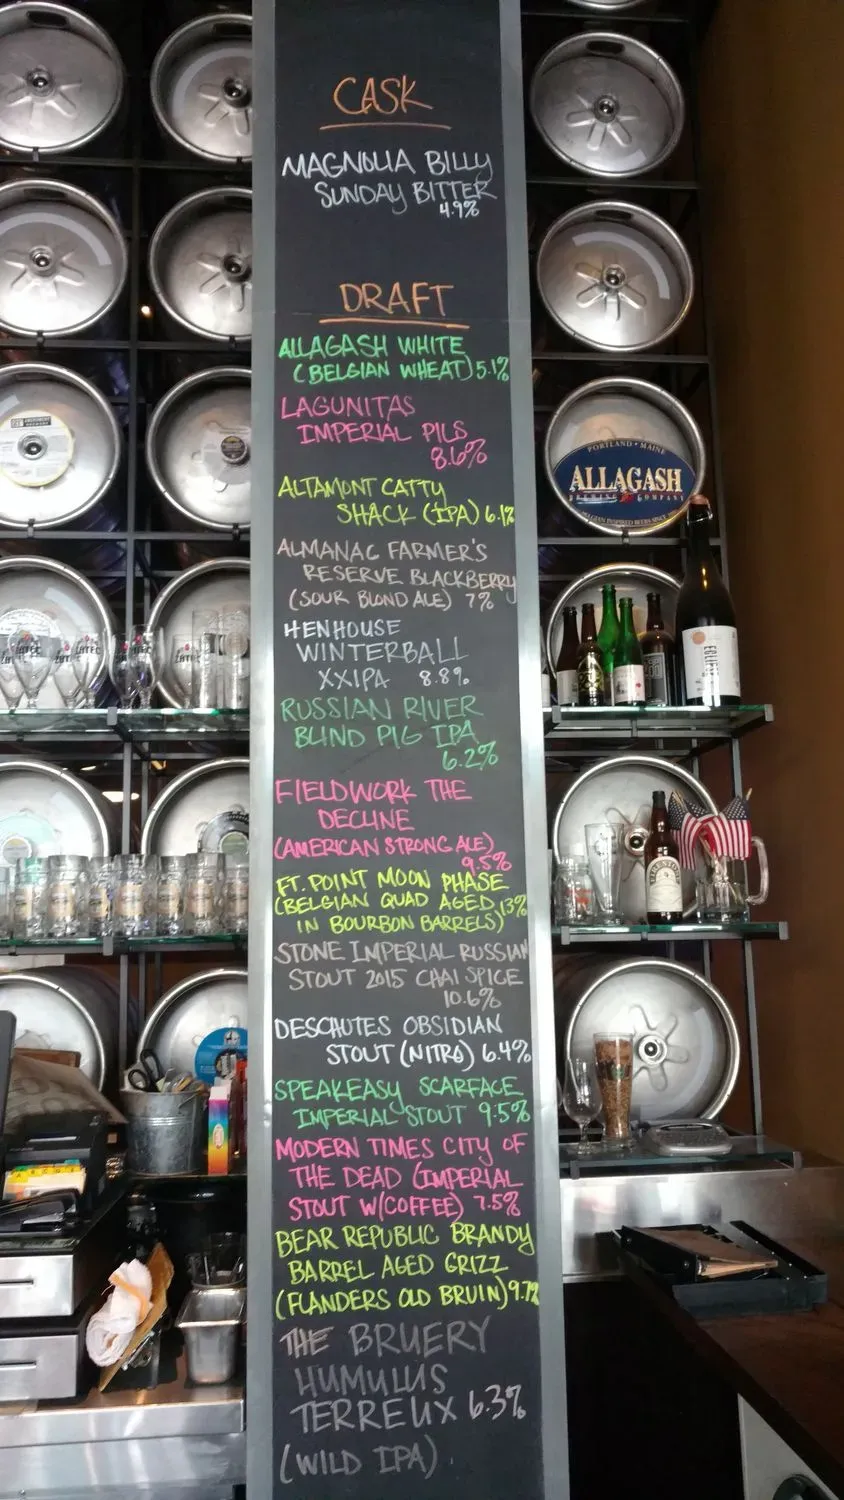 CASK
MAGNOLIA BILLY
SUNDAY BITTER
4.9%
DRAFT
ALLAGASH WHITE
(BELGIAN WHEAT) 5.1%
LAGUNITAS
IMPERIAL PILS
8.6%
ALTAMONT CATTY
SHACK (IPA) 6.1%
ALMANAC FARMER'S
RESERVE BLACKBERRY
(SOUR BLOND ALE) 7%
HENHOUSE
WINTERBALL
XXIPA 8.8%
RUSSIAN RIVER
BLIND PIG IPA
6.2%
FIELDWORK THE
DECLINE
(AMERICAN STRONG ALE)
9.5%
FT. POINT MOON PHASE
(BELGIAN QUAD AGED 13%
IN BOURBON BARRELS)
STONE IMPERIAL RUSSIAN
STOUT 2015 CHAI SPICE
10.6%
DESCHUTES OBSIDIAN
STOUT (NITRO) 6.4%
SPEAKEASY SCARFACE
IMPERIAL STOUT 9.5%
MODERN TIMES CITY OF
THE DEAD (IMPERIAL
STOUT W/COFFEE) 7.5%
BEAR REPUBLIC BRANDY
BARREL AGED GRIZZ
(FLANDERS OLD BRUIN) 9.7%
THE BRUERY
HUMULUS
TERREUX 6.3%
(WILD IPA)
PORTLAND • MAINE
ALLAGASH
BREWING COMPANY